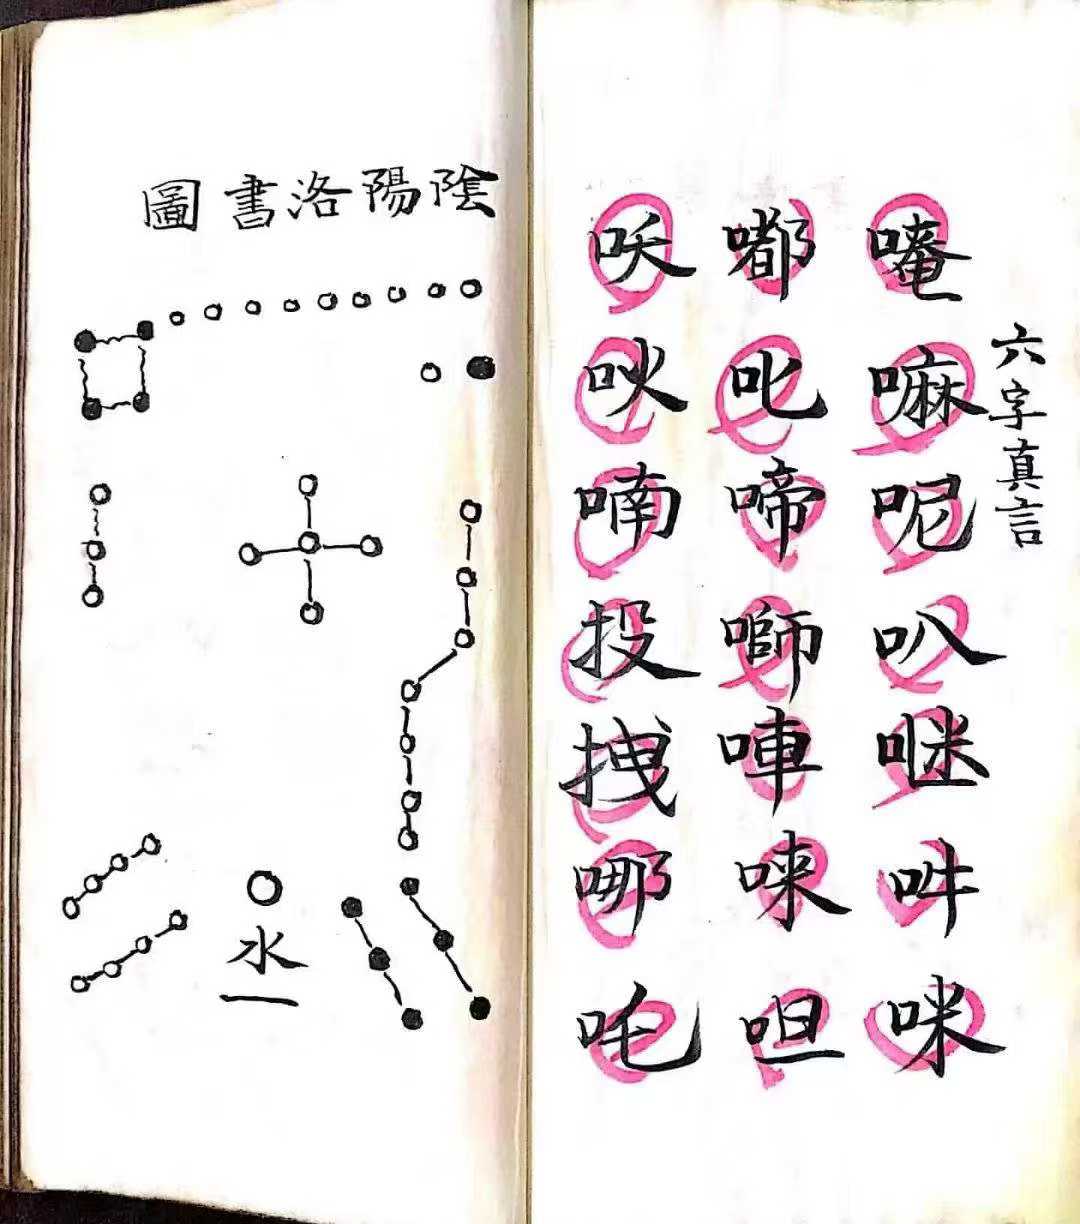 六字真言
唵嘛呢叭吽咪
嘟叱啼唓唻呾
喃投拽哪吒
陰陽洛書圖
水
一